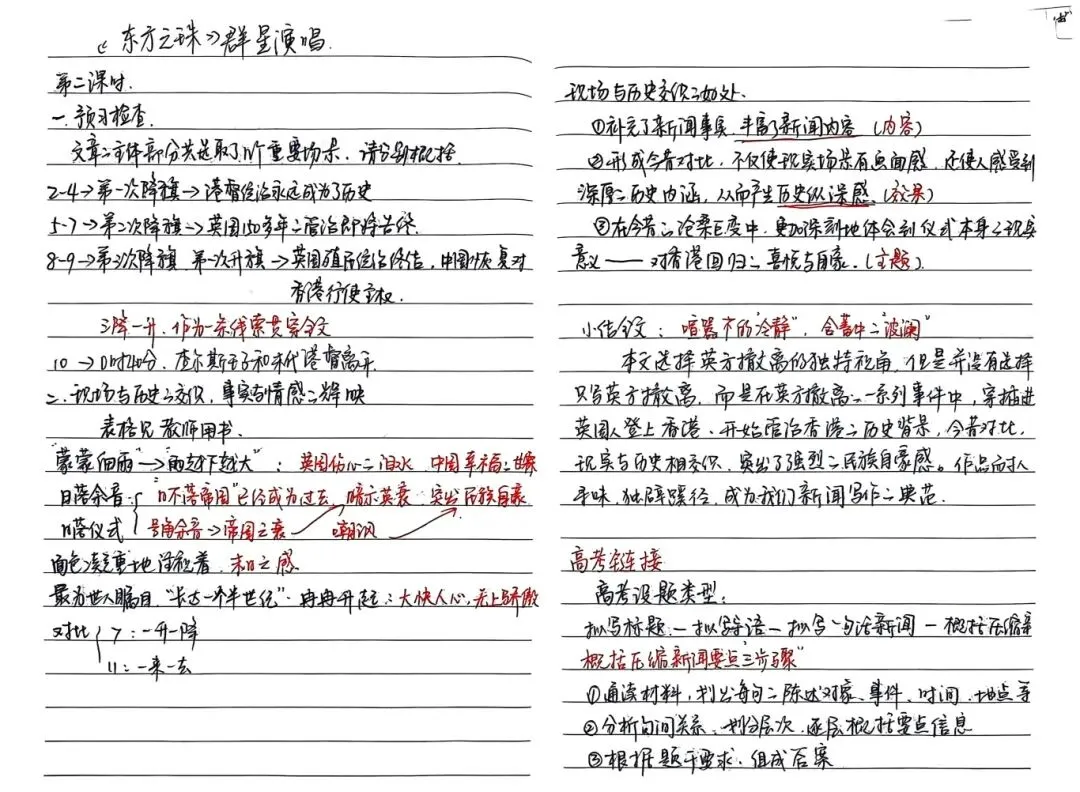 《东方之珠》群星演唱.
第二课时.
一.预习检查.
文章二主体部分共选取了几个重要场景.请分别概括.
2-4→第一次降旗→港督统治永远成为了历史
5-7→第二次降旗→英国150多年二管治即将告终.
8-9→第3次降旗.第一次升旗→英国殖民统治终结,中国恢复对
香港行使主权.
三降一升,作为一条线索贯穿全文
10→0时40分.查尔斯王子和末代港督离开.
二.现场与历史二交织,事实与情感二辉映
表格见教师用书.
"蒙蒙细雨"→"雨越下越大":英国伤心二泪水 中国幸福二
日落余音:"日不落帝国"已经成为过去.暗示英衰.突出民族自豪
日落仪式 号角余音→帝国之衰 嘲讽
面色凝重地注视着.末日之感.
最为世人瞩目."长达一个半世纪".冉冉升起:大快人心,无上骄傲
对比 7:一升一降
11:一来一去
现场与历史交织二妙处.
①补充了新闻事实.丰富了新闻内容(内容)
②形成今昔对比,不仅使现实场景有画面感,还使人感受到
深厚二历史内涵,从而产生历史纵深感.(效果)
③在今昔二沧桑巨变中,更加深刻地体会到仪式本身之现实
意义——对香港回归二喜悦与自豪.(主题)
小结全文:喧嚣下的"冷静",含蓄中二"波澜"
本文选择英方撤离的独特视角,但是并没有选择
只写英方撤离,而是在英方撤离二一系列事件中,穿插进
英国人登上香港、开始管治香港二历史背景,今昔对比,
现实与历史相交织,突出了强烈二民族自豪感.作品耐人
寻味,独辟蹊径,成为我们新闻写作二典范.
高考链接
高考设题类型:
拟写标题—拟写导语—拟写一句话新闻—概括压缩新
概括压缩新闻要点"三步骤"
①通读材料,划出每句二陈述对象、事件、时间、地点等
②分析句间关系、划分层次,逐层概括要点信息
③根据题干要求,组成答案